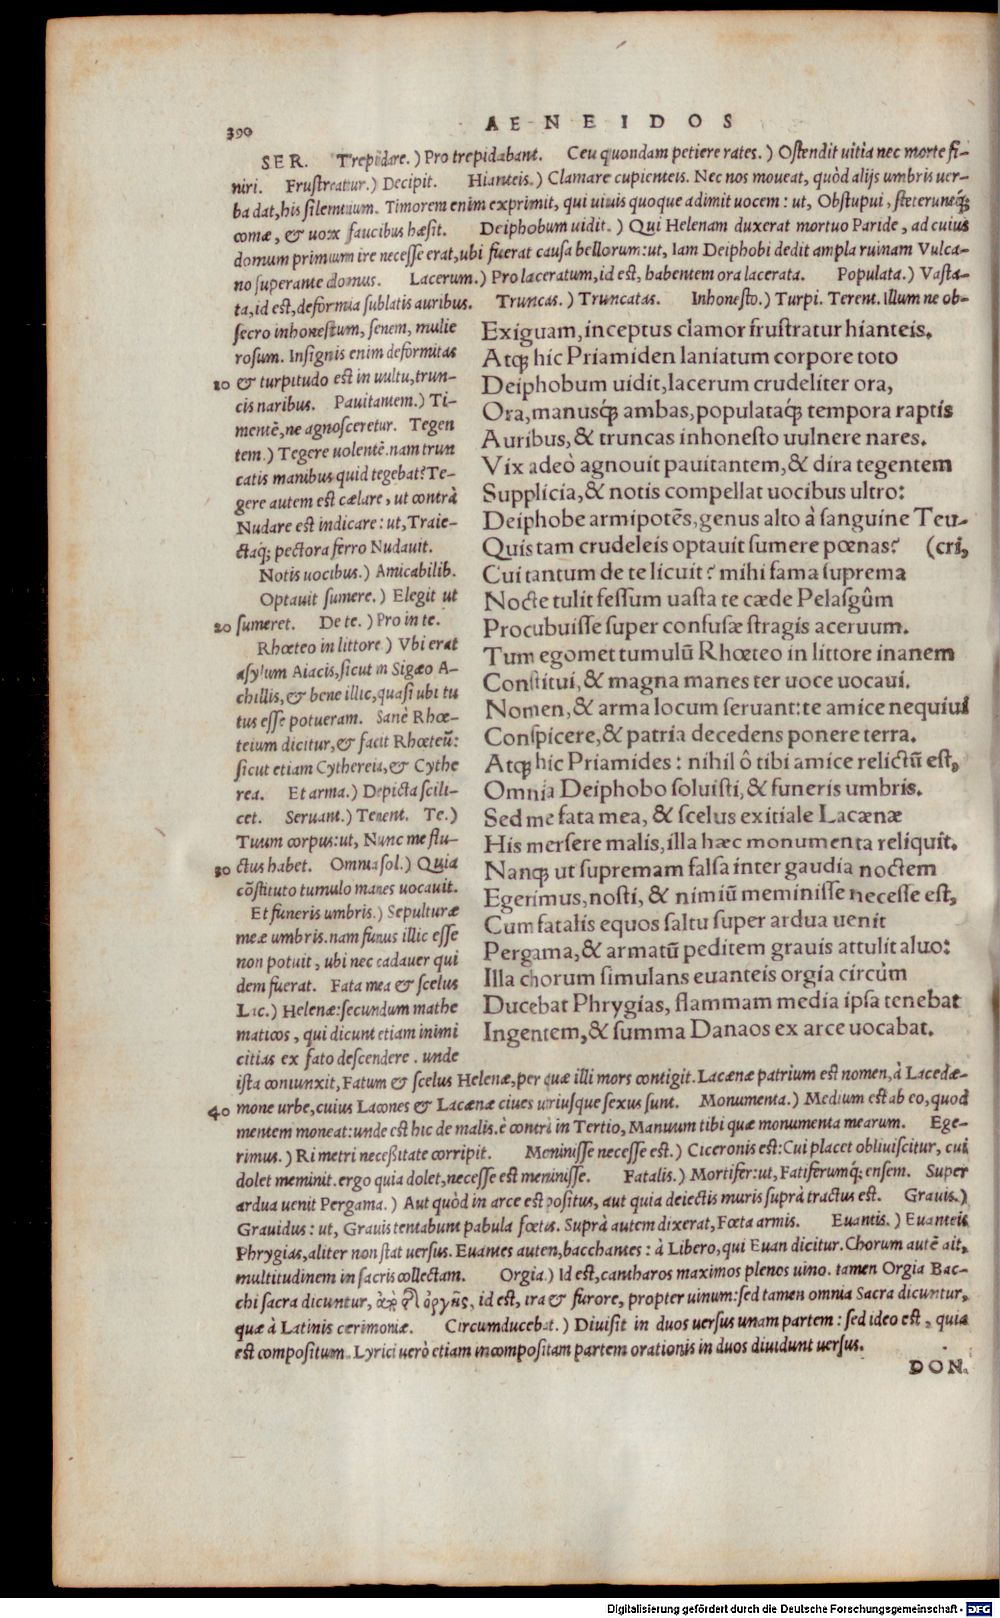 390
AENEIDOS
SER. Trepidare.) Pro trepidabant. Ceu quondam petiere rates.) Ostendit uitia nec morte fi-
niri. Frustreatur.) Decipit. Hianteis.) Clamare cupienteis. Nec nos moueat, quòd alijs umbris uer-
ba dat, his silentium. Timorem enim exprimit, qui uiuis quoque adimit uocem: ut, Obstupui, steteruntq́;
comæ, & uox faucibus hæsit. Deiphobum uidit.) Qui Helenam duxerat mortuo Paride, ad cuius
domum primum ire necesse erat, ubi fuerat causa bellorum: ut, Iam Deiphobi dedit ampla ruinam Vulca-
no superante domus. Lacerum.) Pro laceratum, id est, habentem ora lacerata. Populata.) Vasta-
ta, id est, deformia sublatis auribus. Truncas.) Truncatas. Inhonesto.) Turpi. Terent. Illum ne ob-
secro inhonestum, senem, mulie
rosum. Insignis enim deformitas
10 & turpitudo est in uultu, trun-
cis naribus. Pauitantem.) Ti-
mentē, ne agnosceretur. Tegen
tem.) Tegere uolentē. nam trun
catis manibus quid tegebat? Te-
gere autem est cælare, ut contrà
Nudare est indicare: ut, Traie-
ctaq́; pectora ferro Nudauit.
Notis uocibus.) Amicabilib.
Optauit sumere.) Elegit ut
20 sumeret. De te.) Pro in te.
Rhœteo in littore.) Vbi erat
asylum Aiacis, sicut in Sigæo A-
chillis, & bene illic, quasi ubi tu
tus esse potueram. Sanè Rhœ-
teium dicitur, & facit Rhœteū:
sicut etiam Cythereia, & Cythe
rea. Et arma.) Depicta scili-
cet. Seruant.) Tenent. Te.)
Tuum corpus: ut, Nunc me flu-
30 ctus habet. Omnia sol.) Quia
cōstituto tumulo manes uocauit.
Et funeris umbris.) Sepulturæ
meæ umbris. nam funus illic esse
non potuit, ubi nec cadauer qui
dem fuerat. Fata mea & scelus
Lac.) Helenæ: secundum mathe
maticos, qui dicunt etiam inimi
citias ex fato descendere. unde
Exiguam, inceptus clamor frustratur hianteis.
Atq; hic Priamiden laniatum corpore toto
Deiphobum uidit, lacerum crudeliter ora,
Ora, manusq́; ambas, populataq́; tempora raptis
Auribus, & truncas inhonesto uulnere nares.
Vix adeò agnouit pauitantem, & dira tegentem
Supplicia, & notis compellat uocibus ultro:
Deiphobe armipotēs, genus alto à sanguine Teu-
Quis tam crudeleis optauit sumere pœnas? (cri,
Cui tantum de te licuit? mihi fama suprema
Nocte tulit fessum uasta te cæde Pelasgûm
Procubuisse super confusæ stragis aceruum.
Tum egomet tumulū Rhœteo in littore inanem
Constitui, & magna manes ter uoce uocaui.
Nomen, & arma locum seruant: te amice nequiui
Conspicere, & patria decedens ponere terra.
Atq; hic Priamides: nihil ô tibi amice relictū est,
Omnia Deiphobo soluisti, & funeris umbris.
Sed me fata mea, & scelus exitiale Lacænæ
His mersere malis, illa hæc monumenta reliquit.
Nanq; ut supremam falsa inter gaudia noctem
Egerimus, nosti, & nimiū meminisse necesse est,
Cum fatalis equos saltu super ardua uenit
Pergama, & armatū peditem grauis attulit aluo:
Illa chorum simulans euanteis orgia circùm
Ducebat Phrygias, flammam media ipsa tenebat
Ingentem, & summa Danaos ex arce uocabat.
ista coniunxit, Fatum & scelus Helenæ, per quæ illi mors contigit. Lacænæ patrium est nomen, à Lacedæ-
40 mone urbe, cuius Lacones & Lacænæ ciues utriusque sexus sunt. Monumenta.) Medium est ab eo, quod
mentem moneat: unde est hic de malis. è contrà in Tertio, Manuum tibi quæ monumenta mearum. Ege-
rimus.) Ri metri necessitate corripit. Meminisse necesse est.) Ciceronis est: Cui placet obliuiscitur, cui
dolet meminit. ergo quia dolet, necesse est meminisse. Fatalis.) Mortifer: ut, Fatiferumq́; ensem. Super
ardua uenit Pergama.) Aut quòd in arce est positus, aut quia deiectis muris suprà tractus est. Grauis.)
Grauidus: ut, Grauis tentabunt pabula fœtas. Suprà autem dixerat, Fœta armis. Euantis.) Euanteis
Phrygias, aliter non stat uersus. Euantes autem, bacchantes: à Libero, qui Euan dicitur. Chorum autē ait,
multitudinem in sacris collectam. Orgia.) Id est, cantharos maximos plenos uino. tamen Orgia Bac-
chi sacra dicuntur, ἀπὸ τῆς ὀργῆς, id est, ira & furore, propter uinum: sed tamen omnia Sacra dicuntur,
quæ à Latinis cerimoniæ. Circumducebat.) Diuisit in duos uersus unam partem: sed ideo est, quia
est compositum. Lyrici uerò etiam incompositam partem orationis in duos diuidunt uersus.
DON.
Digitalisierung gefördert durch die Deutsche Forschungsgemeinschaft - DFG